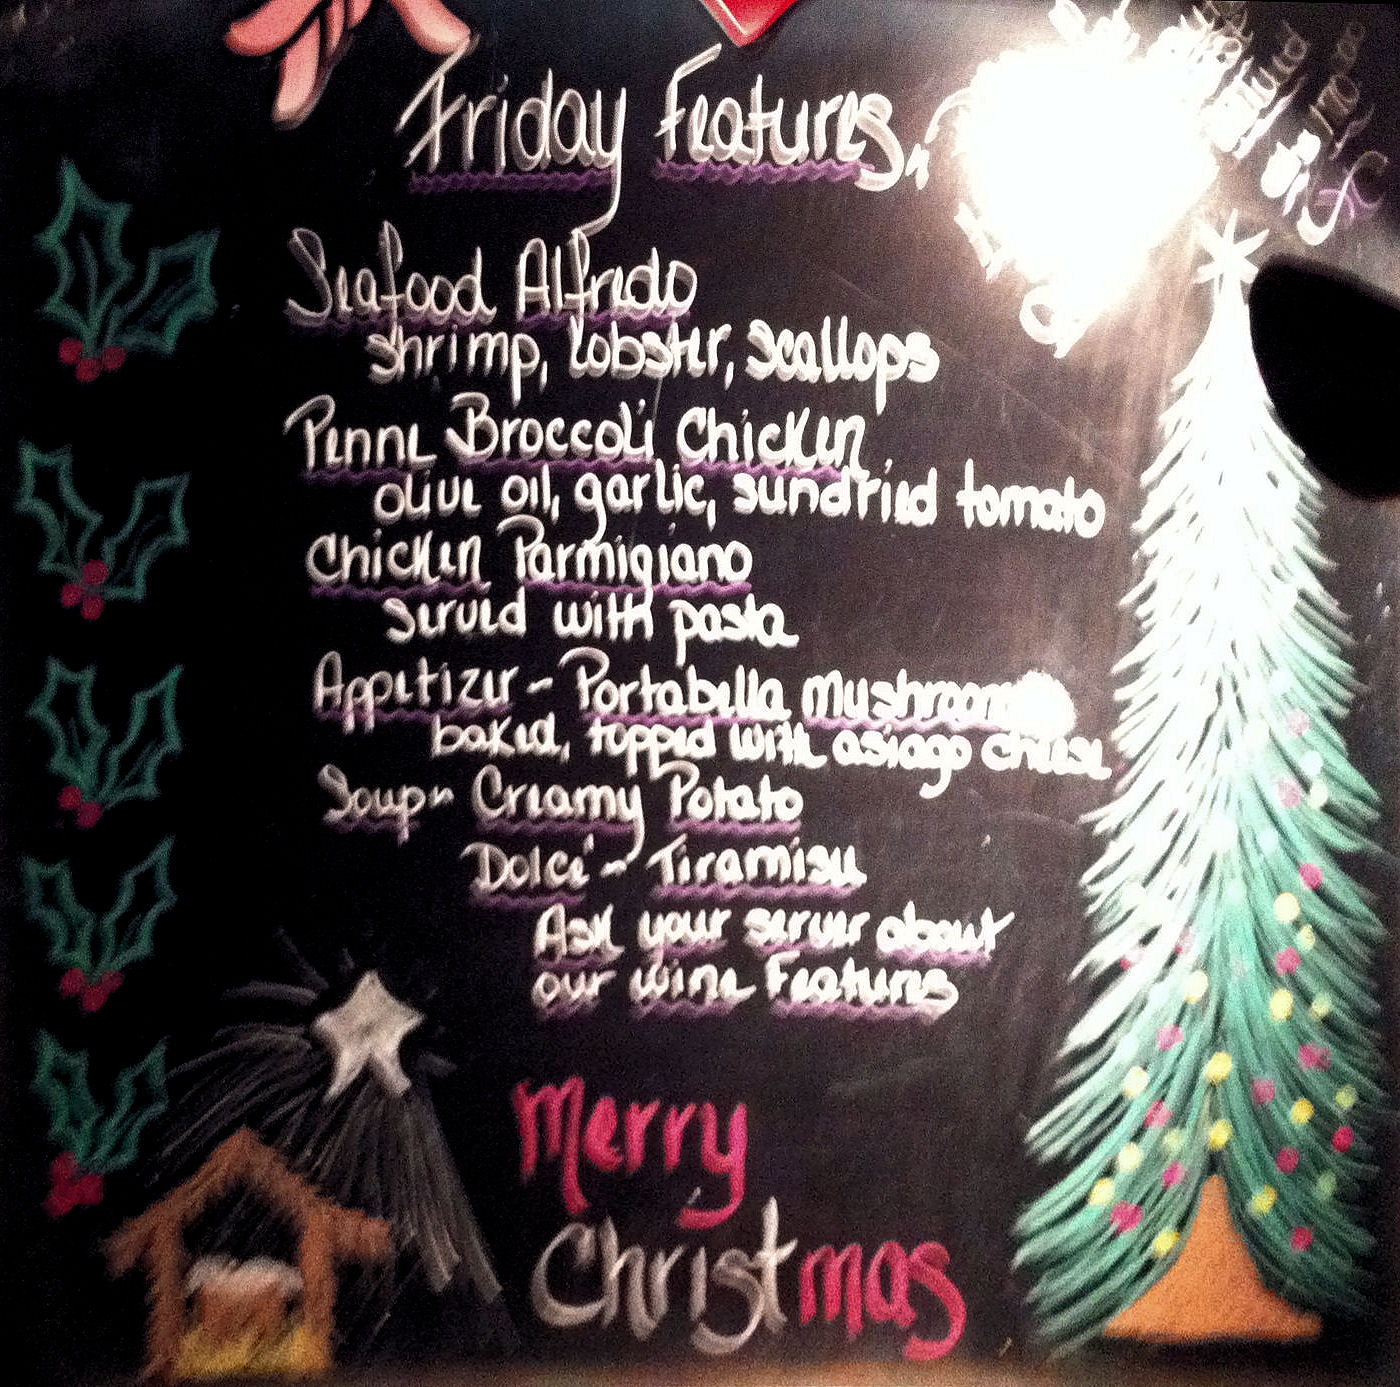 Friday Features
Seafood Alfredo
shrimp, lobster, scallops
Penne Broccoli Chicken
olive oil, garlic, sundried tomato
Chicken Parmigiano
served with pasta
Appetizer - Portabella Mushrooms
baked, topped with asiago cheese
Soup - Creamy Potato
Dolcé - Tiramisu
Ask your server about
our wine Features
Merry
Christmas